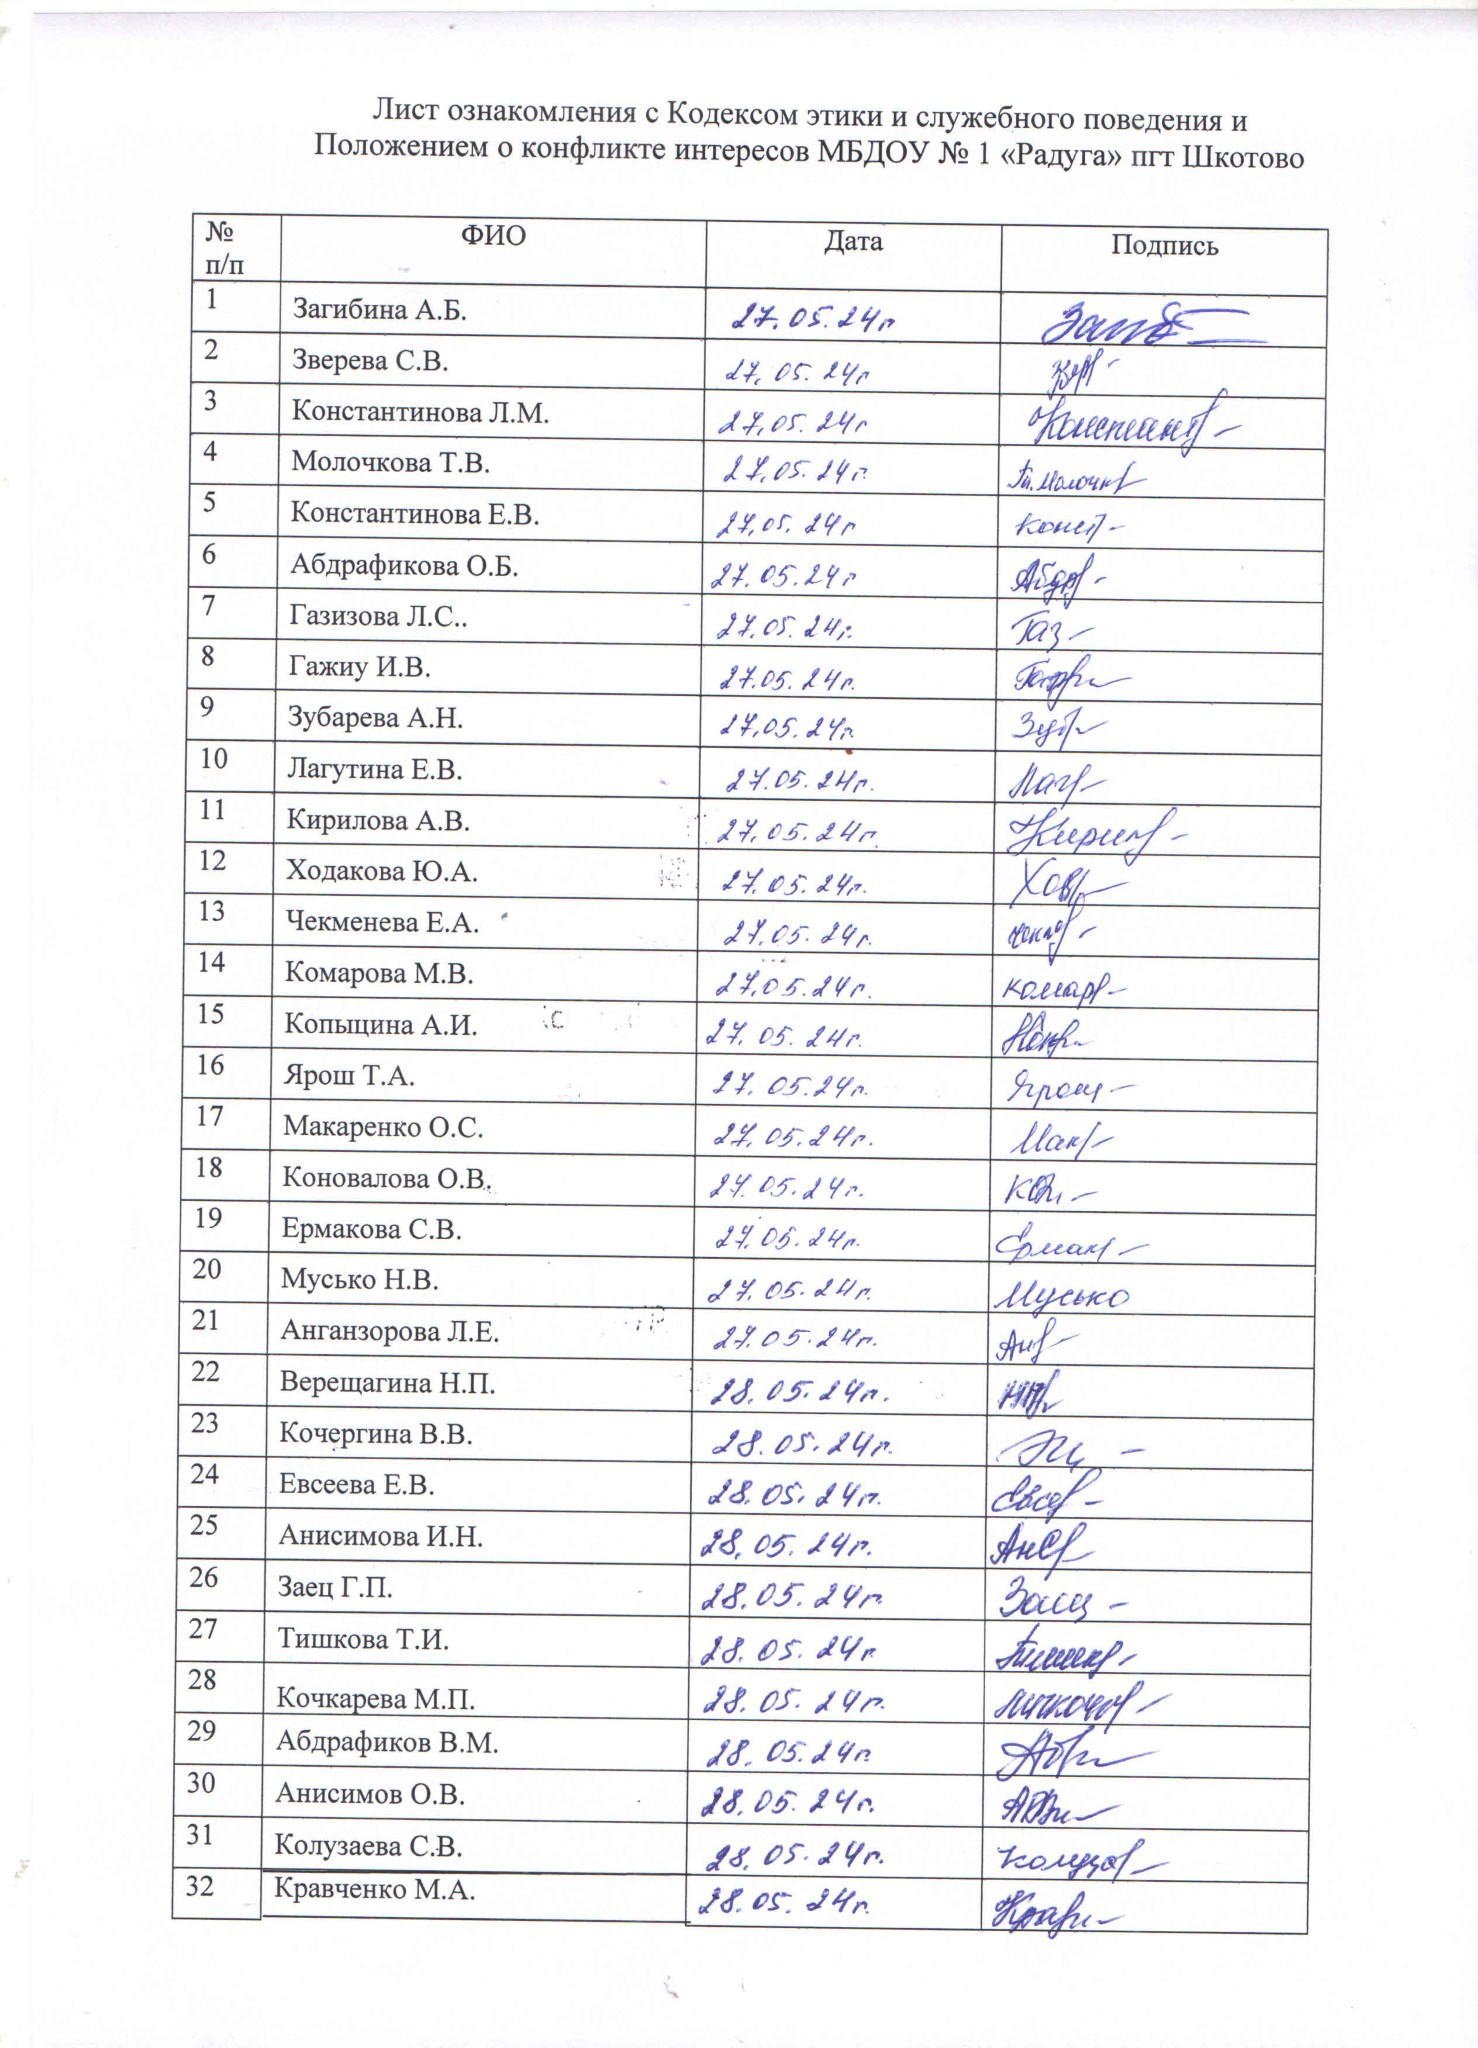 Лист ознакомления с Кодексом этики и служебного поведения и
Положением о конфликте интересов МБДОУ № 1 «Радуга» пгт Шкотово
№ п/п ФИО Дата Подпись
1 Загибина А.Б. 27.05.24г
2 Зверева С.В. 27.05.24г
3 Константинова Л.М. 27.05.24г Констант
4 Молочкова Т.В. 27.05.24г. Молочк
5 Константинова Е.В. 27.05.24г Конст
6 Абдрафикова О.Б. 27.05.24г Абдр
7 Газизова Л.С.. 27.05.24г. Газ
8 Гажиу И.В. 27.05.24г.
9 Зубарева А.Н. 27.05.24г. Зуб
10 Лагутина Е.В. 27.05.24г. Лаг
11 Кирилова А.В. 27.05.24г. Кирил
12 Ходакова Ю.А. 27.05.24г. Ход
13 Чекменева Е.А. 27.05.24г.
14 Комарова М.В. 27.05.24г. Комар
15 Копыцина А.И. 27.05.24г.
16 Ярош Т.А. 27.05.24г. Ярош
17 Макаренко О.С. 27.05.24г. Мак
18 Коновалова О.В. 27.05.24г.
19 Ермакова С.В. 27.05.24г. Ермак
20 Мусько Н.В. 27.05.24г. Мусько
21 Анганзорова Л.Е. 27.05.24г. Ан
22 Верещагина Н.П. 28.05.24г.
23 Кочергина В.В. 28.05.24г.
24 Евсеева Е.В. 28.05.24г. Евсе
25 Анисимова И.Н. 28.05.24г.
26 Заец Г.П. 28.05.24г. Заец
27 Тишкова Т.И. 28.05.24г Тишк
28 Кочкарева М.П. 28.05.24г.
29 Абдрафиков В.М. 28.05.24г.
30 Анисимов О.В. 28.05.24г.
31 Колузаева С.В. 28.05.24г. Колуза
32 Кравченко М.А. 28.05.24г. Крав